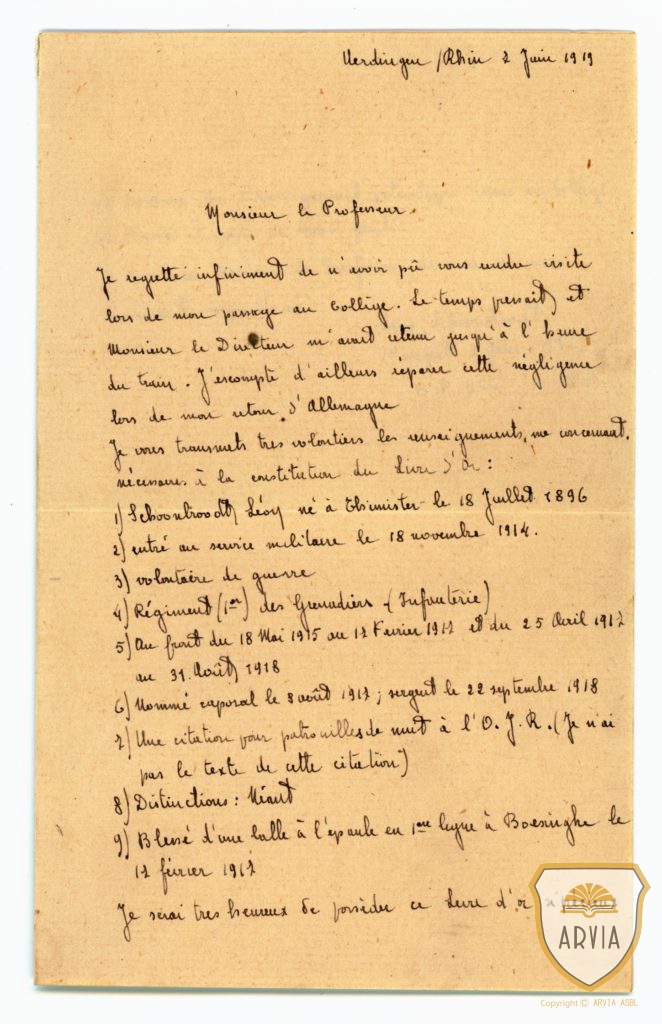 Uerdingen /Rhin 2 Juin 1919
Monsieur le Professeur
Je regrette infiniment de n'avoir pû vous rendre visite
lors de mon passage au Collège. Le temps pressait, et
Monsieur le Directeur m'avait retenu jusqu'à l'heure
du train. J'escompte d'ailleurs réparer cette négligence
lors de mon retour d'Allemagne
Je vous transmets tres volontiers les renseignements, me concernant,
nécessaires à la constitution du Livre d'Or :
1) Schoonbroodt, Léon né à Thimister le 18 Juillet 1896
2) entré au service militaire le 18 novembre 1914.
3) volontaire de guerre
4) Régiment (1er) des Grenadiers (Infanterie)
5) Au front du 18 Mai 1915 au 12 Février 1917 et du 25 Avril 1917
au 31 Août 1918
6) Nommé caporal le 3 août 1917 ; sergent le 22 septembre 1918
7) Une citation pour patrouilles de nuit à l'O. J. R. (Je n'ai
pas le texte de cette citation)
8) Distinctions : Néant
9) Blessé d'une balle à l'épaule en 1ere ligne à Boesinghe le
12 février 1917
Je serai tres heureux de posséder ce livre d'or
ARVIA
Copyright © ARVIA ASBL